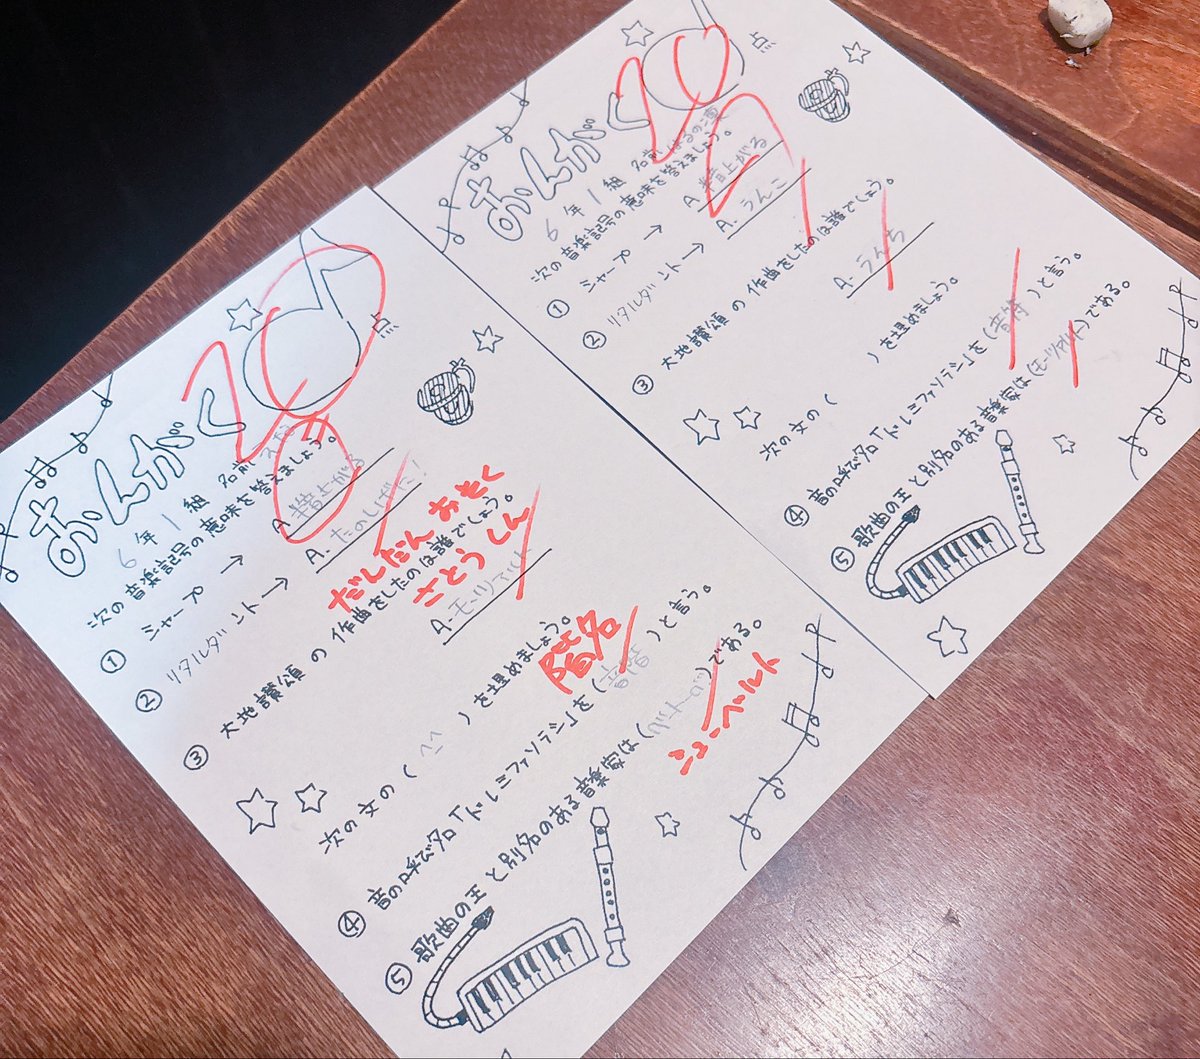 おんがく
20
点
6年1組 名前
次の音楽記号の意味を答えましょう。
① シャープ → A. 半音上がる
② リタルダント→ A. たのしげに!
だんだんおそく
③ 大地讃頌の作曲をしたのは誰でしょう。
さとうしん
A. モーツァルト
次の文の( ^^ )を埋めましょう。
④ 音の呼び名「ドレミファソラシ」を(音階)と言う。
階名
⑤ 歌曲の王と別名のある音楽家は( )である。
シューベルト
おんがく
20
点
6年1組 名前 はるの
次の音楽記号の意味を答えましょう。
① シャープ → A 半音上がる
② リタルダント→ A. うんこ
③ 大地讃頌の作曲をしたのは誰でしょう。
A. うんち
次の文の( )を埋めましょう。
④ 音の呼び名「ドレミファソラシ」を(音符)と言う。
⑤ 歌曲の王と別名のある音楽家は(モーツァルト)である。